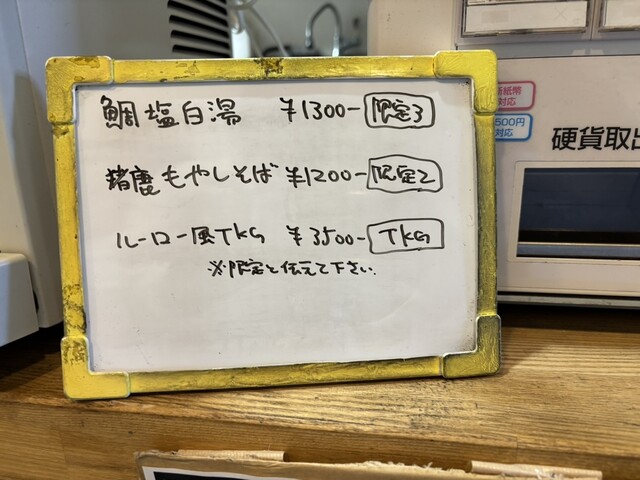 鯛塩白湯 ¥1300- 限定3
猪鹿もやしそば ¥1200- 限定2
ルーロー風TKG ¥3500- TKG
※限定と伝えて下さい.
新紙幣
対応
500円
対応
硬貨取出